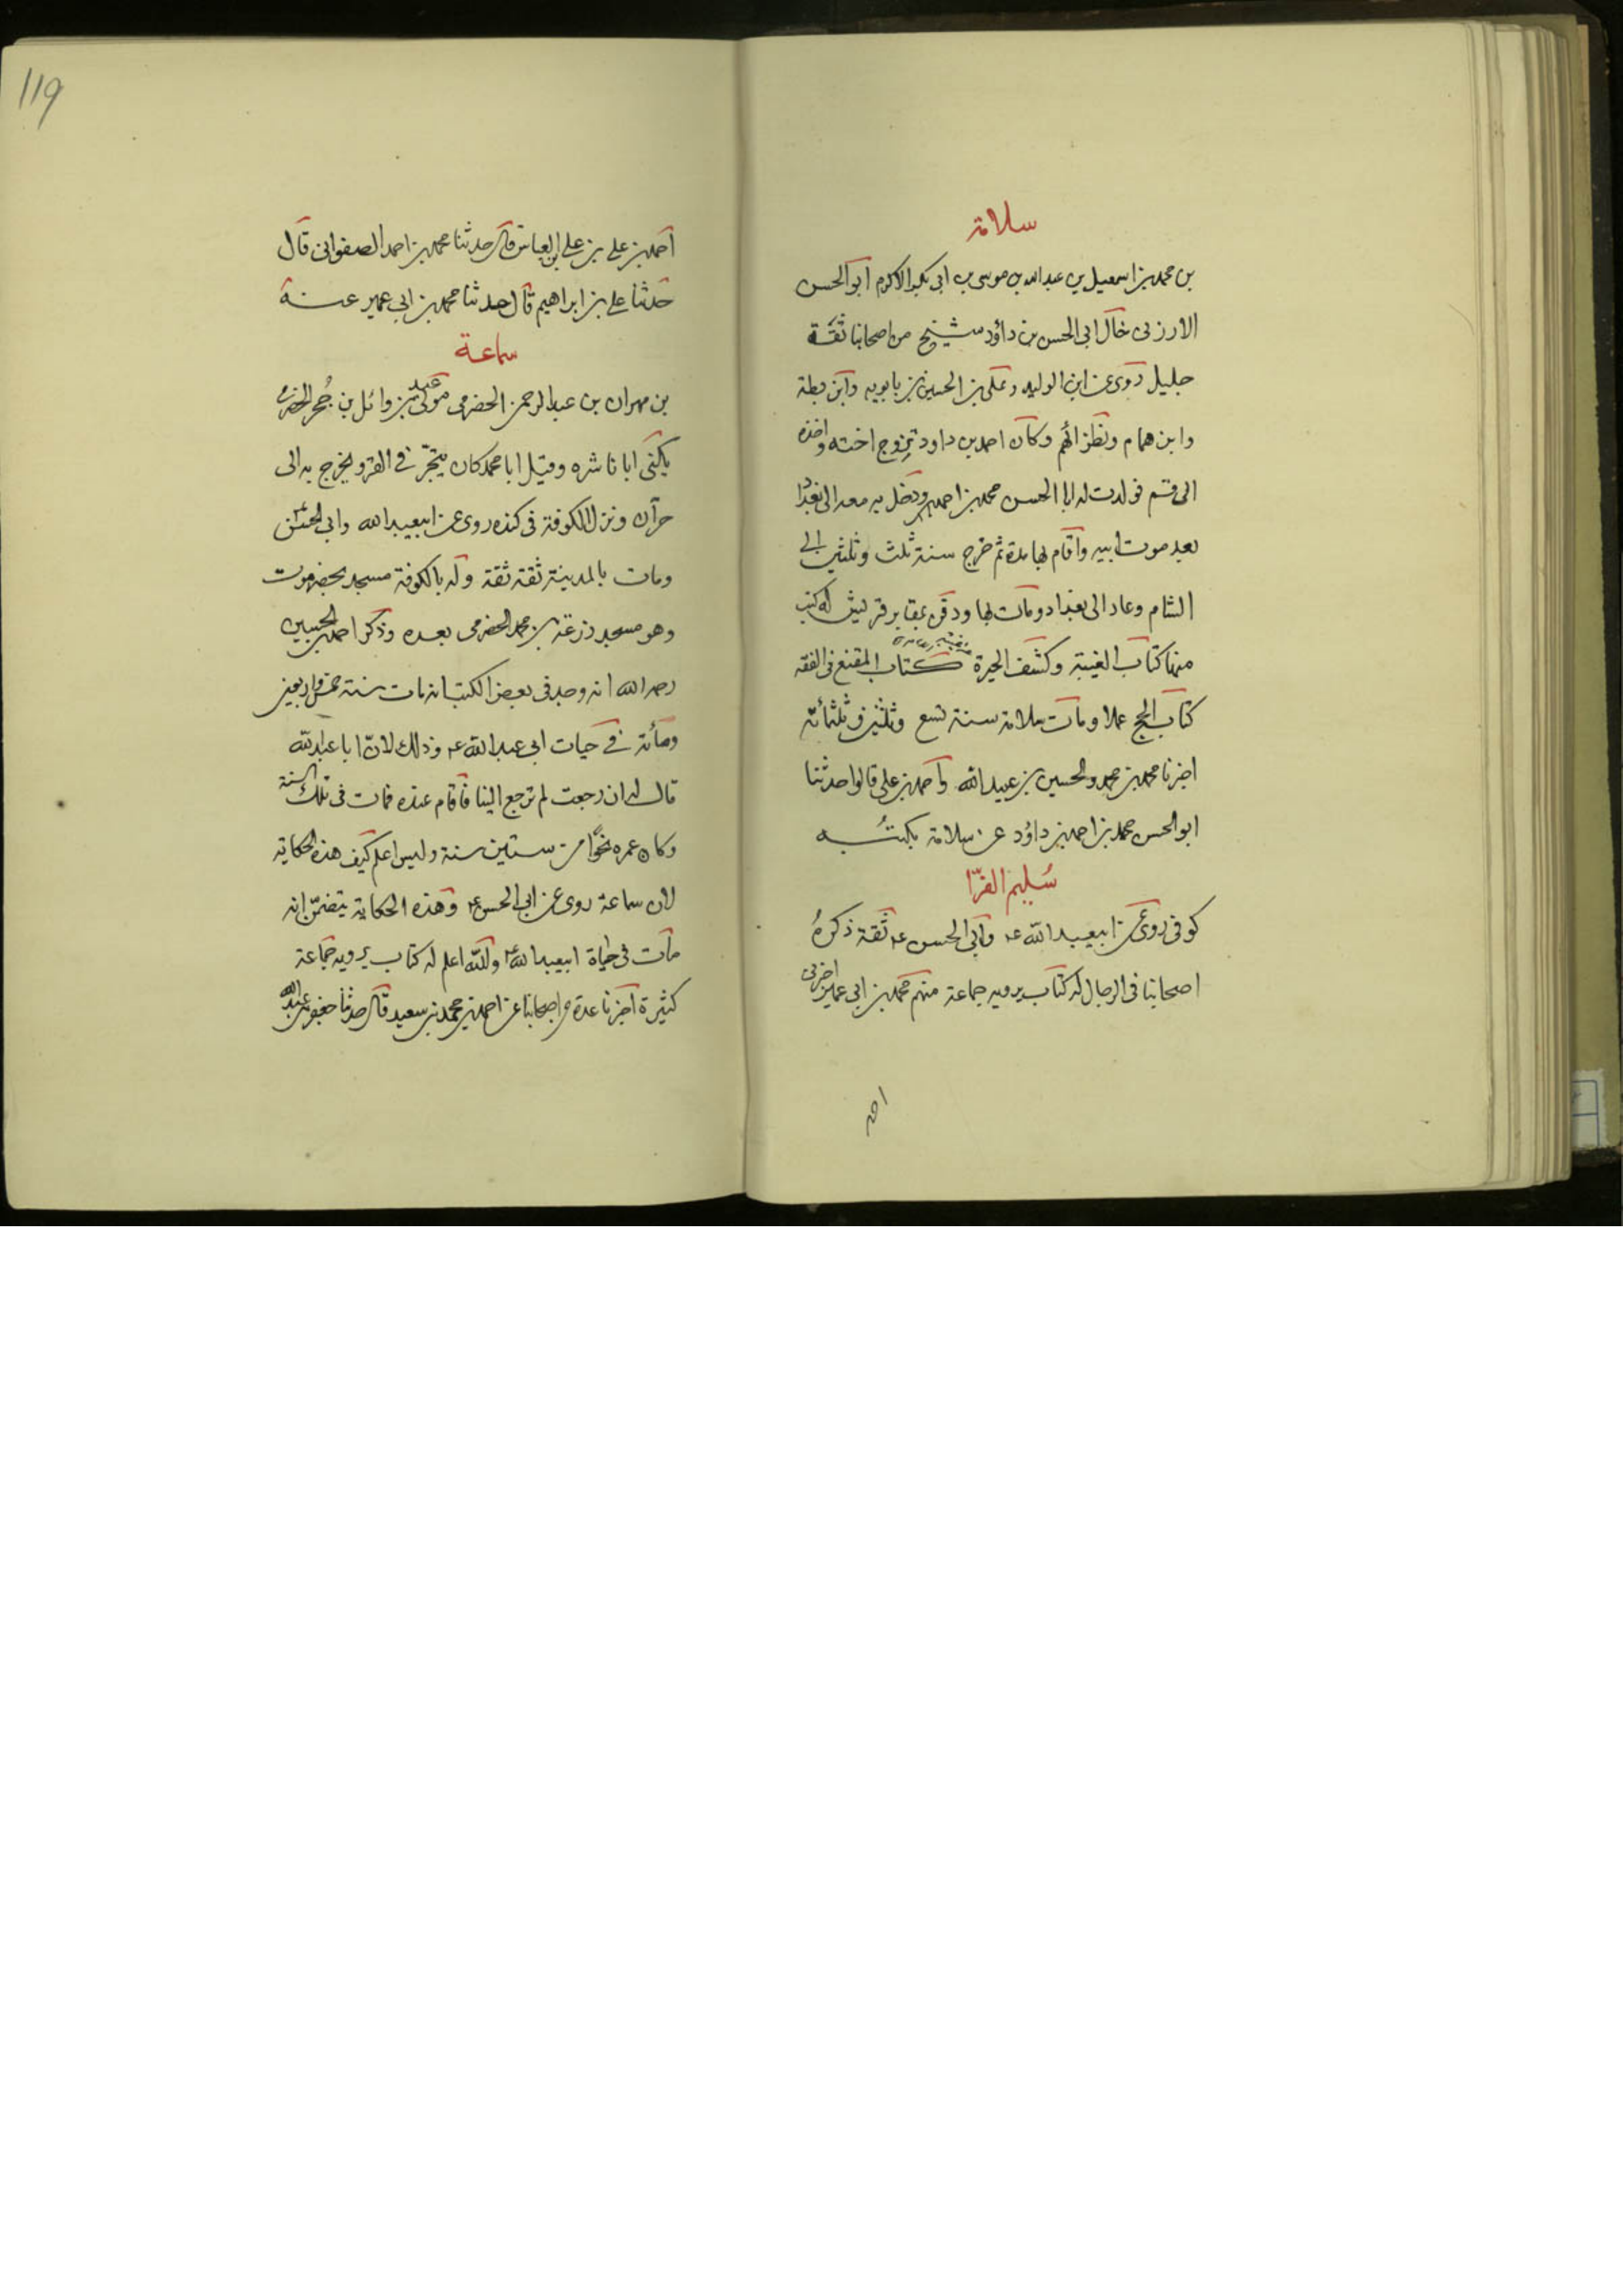 سلامة
بن محمد بن اسمعيل بن عبد الله بن موسى بن ابى بكر الاكرم ابو الحسن
الارزنى خال ابى الحسن بن داؤد شيخ من اصحابنا ثقة
جليل روى عن ابن الوليد وعلى بن الحسين بن بابويه وابن بطة
وابن همام ونظرائهم وكان احمد بن داود تزوج اخته واخذه
الى قم فولدت له ابا الحسن محمد بن احمد ودخل به معه الى بغداد
بعد موت ابيه واقام بها مدة ثم خرج سنة ثلث وثلثين الى
الشام وعاد الى بغداد ومات بها ودفن بمقابر قريش له كتب
منها كتاب الغيبة وكشف الحيرة كتاب المقنع فى الفقه
كتاب الحج عملا ومات سلامة سنة تسع وثلثين وثلثمائة
اخبرنا محمد بن محمد والحسين بن عبيد الله واحمد بن على قالوا حدثنا
ابو الحسن محمد بن احمد بن داؤد عن سلامة بكتبه
سُليم الفرّا
كوفى روى عن ابيعبد الله ع وابى الحسن ع ثقة ذكرهُ
اصحابنا فى الرجال له كتاب يرويه جماعة منهم محمد بن ابى عمير اخبرنى
احمد
119
احمد بن على بن على ابن العباس قال حدثنا محمد بن احمد الصفوانى قال
حدثنا على بن ابراهيم قال حدثنا محمد بن ابى عمير عنه
سماعة
بن مهران بن عبد الرحمن الحضرمى مولى عبد بن وائل بن حُجر الحضرمى
يكنى ابا ناشره وقيل ابا محمد كان يتجّر فى القز ويخرج به الى
حرّان ونزل الكوفة فى كنده روى عن ابيعبد الله وابى الحسن ع
ومات بالمدينة ثقة ثقة وله بالكوفة مسجد بحضرموت
وهو مسجد زرعة بن محمد الحضرمى بعده وذكر احمد بن الحسين
رحمه الله انه وجد فى بعض الكتب انه مات سنة خمس واربعين
ومأئة فى حيات ابى عبد الله ع وذالك لانّ ابا عبد الله
قال له ان رجعت لم ترجع الينا فاقام عنده فمات فى تلك السنة
وكان عمره نحوًا من ستين سنة وليس اعلم كيف هذه الحكاية
لان سماعة روى عن ابى الحسن ع وهذه الحكاية يتضمّن انه
مات فى حياة ابيعبد الله ع والله اعلم له كتاب يرويه جماعة
كثيرة اخبرنا عدة من اصحابنا عن احمد بن محمد بن سعيد قال حدثنا جعفر بن عبد الله